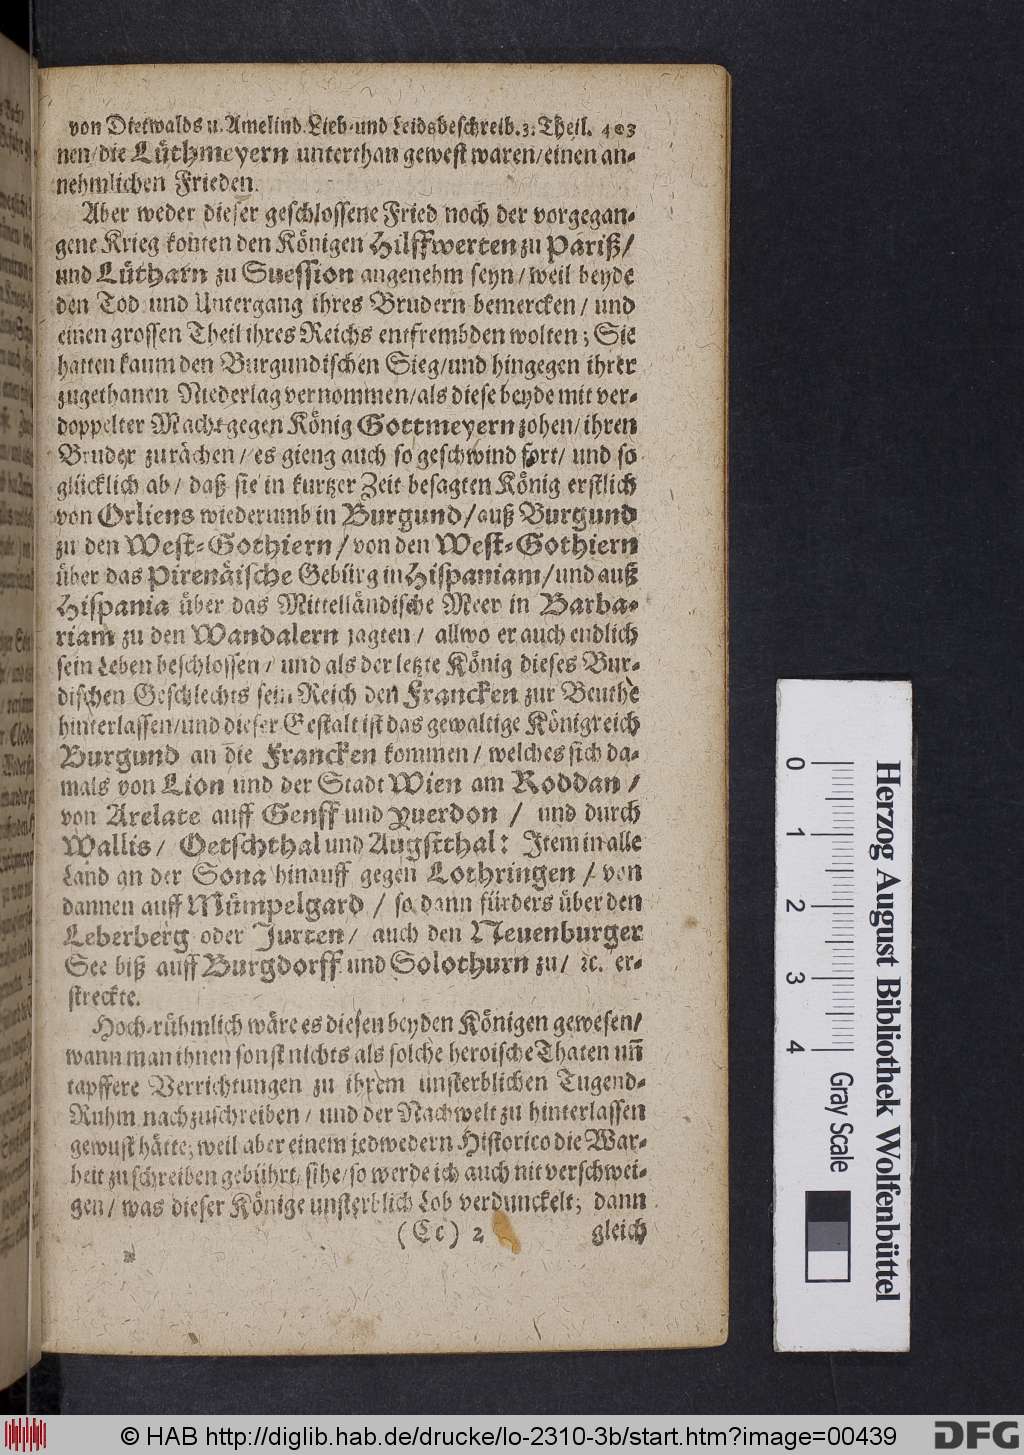 von Dietwalds u. Amelind. Lieb- und Leidsbeschreib. 3. Theil. 403
nen / die Lüthmeyern unterthan gewest waren / einen an-
nehmlichen Frieden.
Aber weder dieser geschlossene Fried noch der vorgegan-
gene Krieg konten den Königen Hilffwerten zu Pariß /
und Lütharn zu Suession angenehm seyn / weil beyde
den Tod und Untergang ihres Brudern bemercken / und
einen grossen Theil ihres Reichs entfrembden wolten; Sie
hatten kaum den Burgundischen Sieg / und hingegen ihrer
zugethanen Niederlag vernommen / als diese beyde mit ver-
doppelter Macht gegen König Gottmeyern zohen / ihren
Bruder zu rächen / es gieng auch so geschwind fort / und so
glücklich ab / daß sie in kurtzer Zeit besagten König erstlich
von Orliens wiederumb in Burgund / auß Burgund
zu den West-Gothiern / von den West-Gothiern
über das Pirenäische Gebürg in Hispaniam / und auß
Hispania über das Mittelländische Meer in Barba-
riam zu den Wandalern jagten / allwo er auch endlich
sein Leben beschlossen / und als der letzte König dieses Bur-
dischen Geschlechts sein Reich den Francken zur Beuthe
hinterlassen / und dieser Gestalt ist das gewaltige Königreich
Burgund an die Francken kommen / welches sich da-
mals von Lion und der Stadt Wien am Roddan /
von Arelate auff Genff und Yverdon / und durch
Wallis / Oetschthal und Augstthal: Item in alle
Land an der Sona hinauff gegen Lothringen / von
dannen auff Mümpelgard / so dann fürders über den
Leberberg oder Jurten / auch den Neuenburger
See biß auff Burgdorff und Solothurn zu / ꝛc. er-
streckte.
Hoch-rühmlich wäre es diesen beyden Königen gewesen /
wann man ihnen sonst nichts als solche heroische Thaten uñ
tapffere Verrichtungen zu ihrem unsterblichen Tugend-
Ruhm nachzuschreiben / und der Nachwelt zu hinterlassen
gewust hätte; weil aber einem jedwedern Historico die War-
heit zu schreiben gebührt, sihe / so werde ich auch nit verschwei-
gen / was dieser Könige unsterblich Lob verdunckelt; dann
(Cc) 2 gleich
0 1 2 3 4
Gray Scale
Herzog August Bibliothek Wolfenbüttel
© HAB http://diglib.hab.de/drucke/lo-2310-3b/start.htm?image=00439
DFG